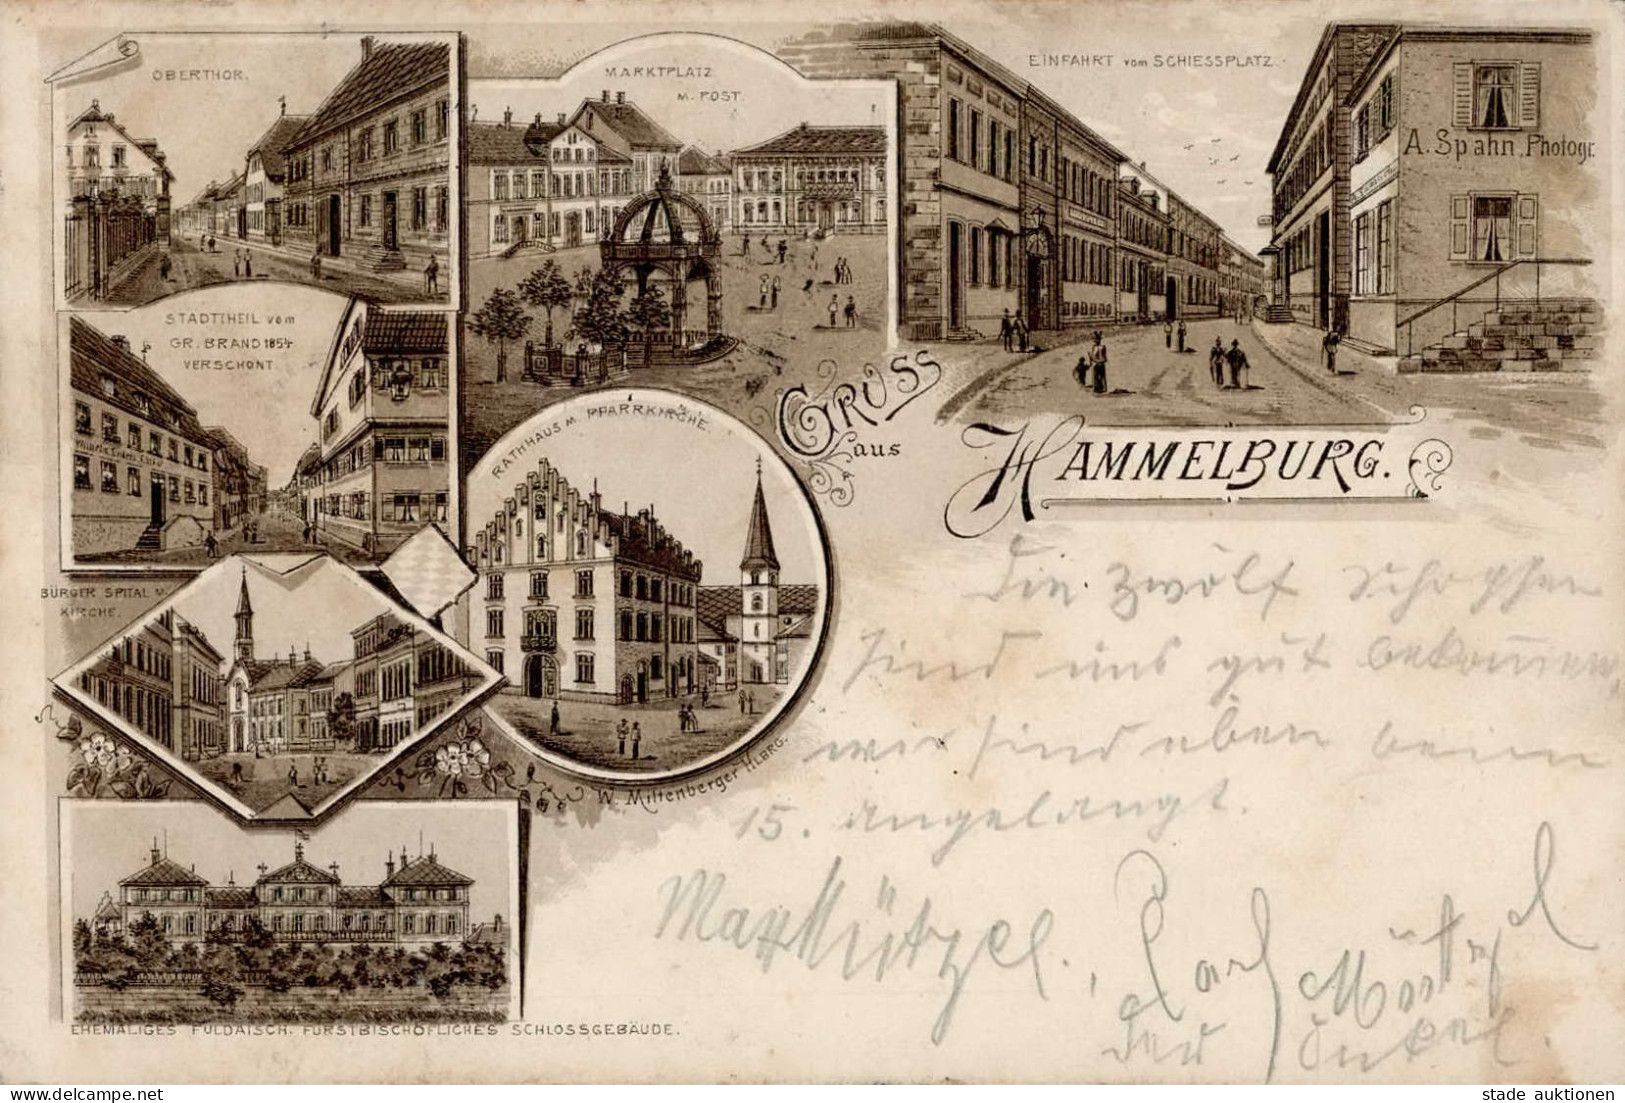 OBERTHOR.
MARKTPLATZ
M. POST.
EINFAHRT vom SCHIESSPLATZ.
A. Spahn, Photogr.
STADTTHEIL vom
GR. BRAND 1854
VERSCHONT.
GRUSS
aus
HAMMELBURG.
RATHHAUS M. PFARRKIRCHE.
BÜRGER SPITAL M.
KIRCHE.
W. Miltenberger HLBRG.
EHEMALIGES FULDAISCH. FÜRSTBISCHÖFLICHES SCHLOSSGEBÄUDE.
Die zwölf Schoppen
sind uns gut bekommen,
wir sind eben beim
15. angelangt.
Max Mützel.
Carl Mützel
der Onkel.
stade auktionen